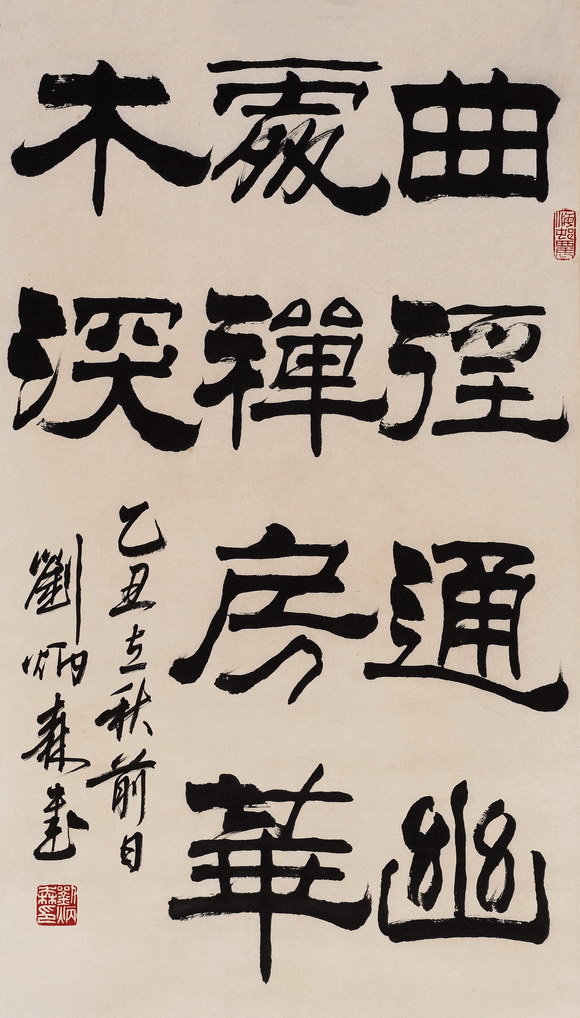 曲徑通幽
處禪房華
木深
乙丑立秋前日
劉炳森書
劉炳森印